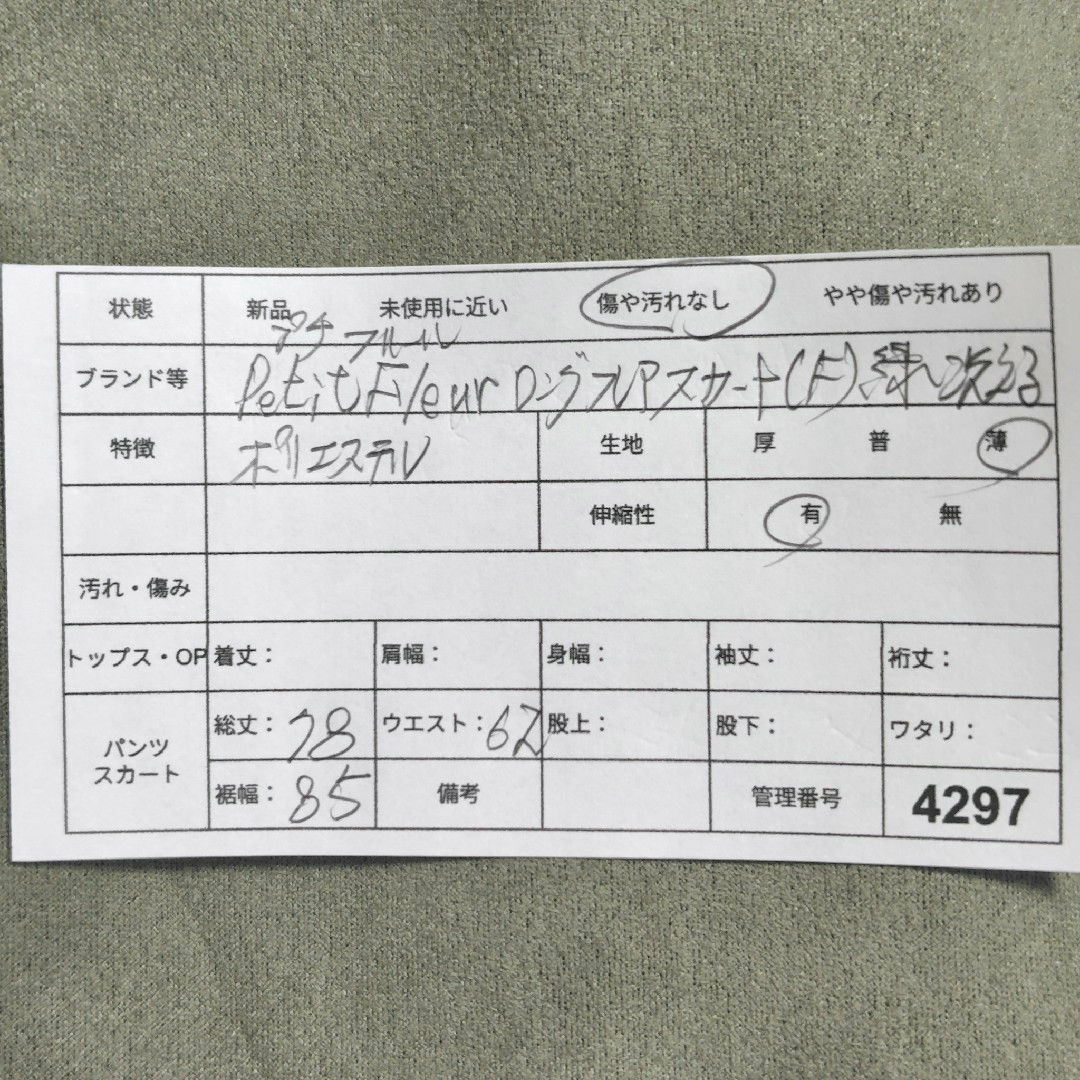 状態 新品 未使用に近い 傷や汚れなし やや傷や汚れあり
プチフルール
ブランド等 Petit Fleur ロングフレアスカート(F)
特徴 ポリエステル 生地 厚 普 薄
伸縮性 有 無
汚れ・傷み
トップス・OP 着丈: 肩幅: 身幅: 袖丈: 裄丈:
パンツ スカート 総丈: 78 ウエスト: 62 股上: 股下: ワタリ:
裾幅: 85 備考 管理番号 4297